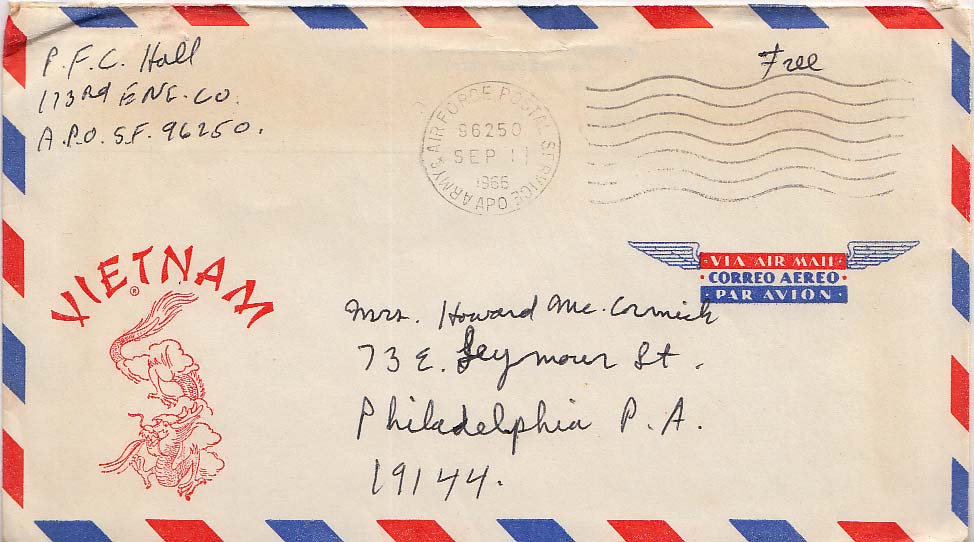 P.F.C. Hall
173rd ENG. CO.
A.P.O. S.F. 96250.
Free
ARMY & AIR FORCE POSTAL SERVICE
96250
SEP 11
1966
APO
VIA AIR MAIL
CORREO AEREO
PAR AVION
VIETNAM
®
Mrs. Howard Mc.Cormick
73 E. Seymour St.
Philadelphia P.A.
19144.